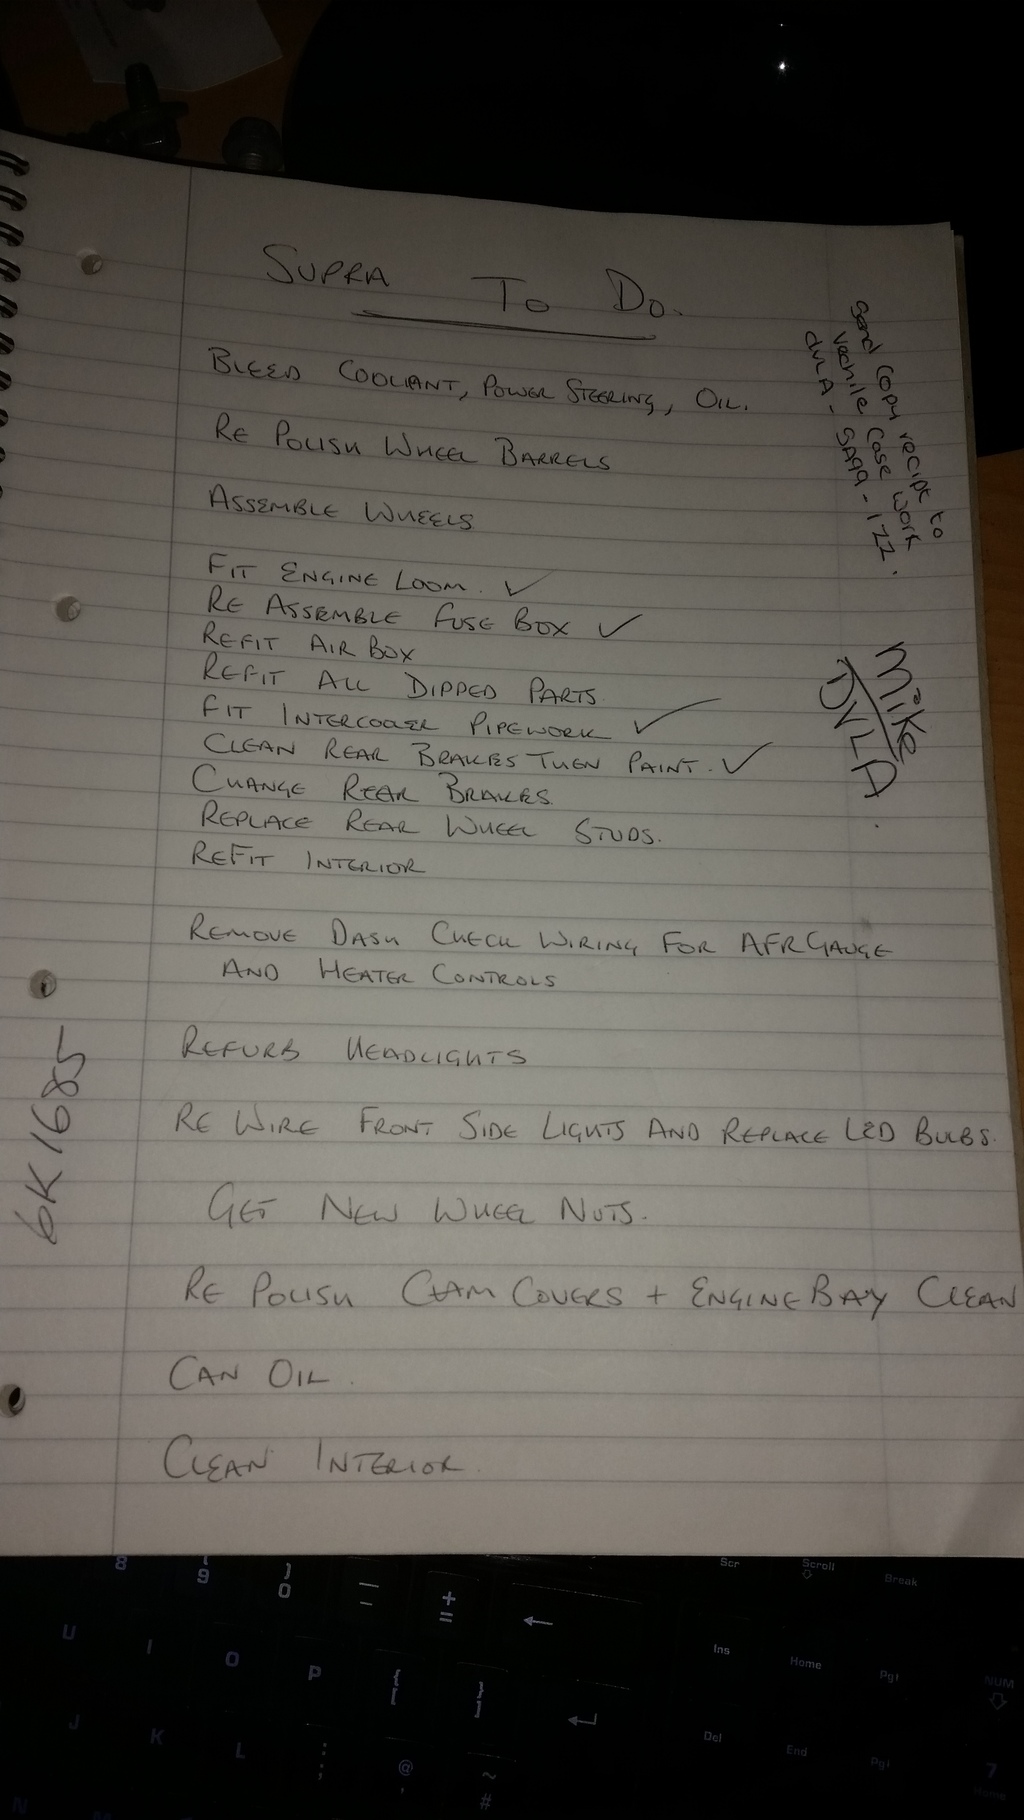 SUPRA TO DO.
BLEED COOLANT, POWER STEERING, OIL.
RE POLISH WHEEL BARRELS
ASSEMBLE WHEELS
FIT ENGINE LOOM. ✓
RE ASSEMBLE FUSE BOX ✓
REFIT AIR BOX
REFIT ALL DIPPED PARTS.
FIT INTERCOOLER PIPEWORK ✓
CLEAN REAR BRAKES THEN PAINT. ✓
CHANGE REAR BRAKES.
REPLACE REAR WHEEL STUDS.
REFIT INTERIOR
REMOVE DASH CHECK WIRING FOR AFR GAUGE
AND HEATER CONTROLS
REFURB HEADLIGHTS
RE WIRE FRONT SIDE LIGHTS AND REPLACE LED BULBS.
GET NEW WHEEL NUTS.
RE POLISH CAM COVERS + ENGINE BAY CLEAN
CAN OIL.
CLEAN INTERIOR.
Send Copy recipt to
vechile Case work
dvLA - SA99 - 1ZZ.
Mike
DVLA
6K1685
8
9
0
-
+
=
←
Scr
Scroll
Break
U
I
O
P
[
]
Ins
Home
PgU
NUM
J
K
L
;
@
'
~
#
Del
End
Pg
7
Home
N
M